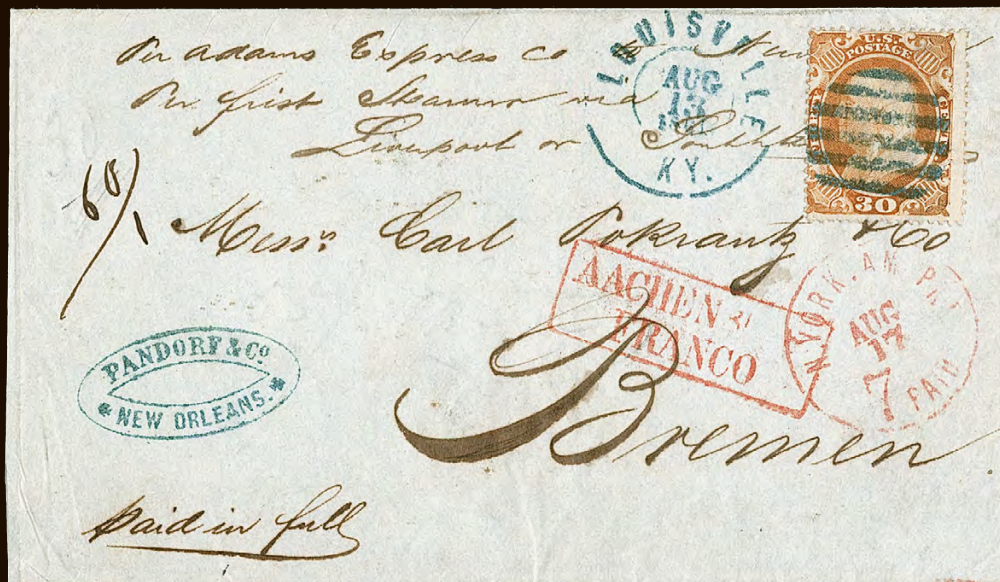 Per Adams Express Co
Per first Steamer via
Liverpool or
LOUISVILLE
AUG
13
1861
KY.
U.S.
POSTAGE
30
60/1
Messrs Carl Pokrantz & Co
Bremen
AACHEN
FRANCO
N. YORK. AM. PKT
AUG
17
7
PAID
PANDORF & CO
NEW ORLEANS.
paid in full